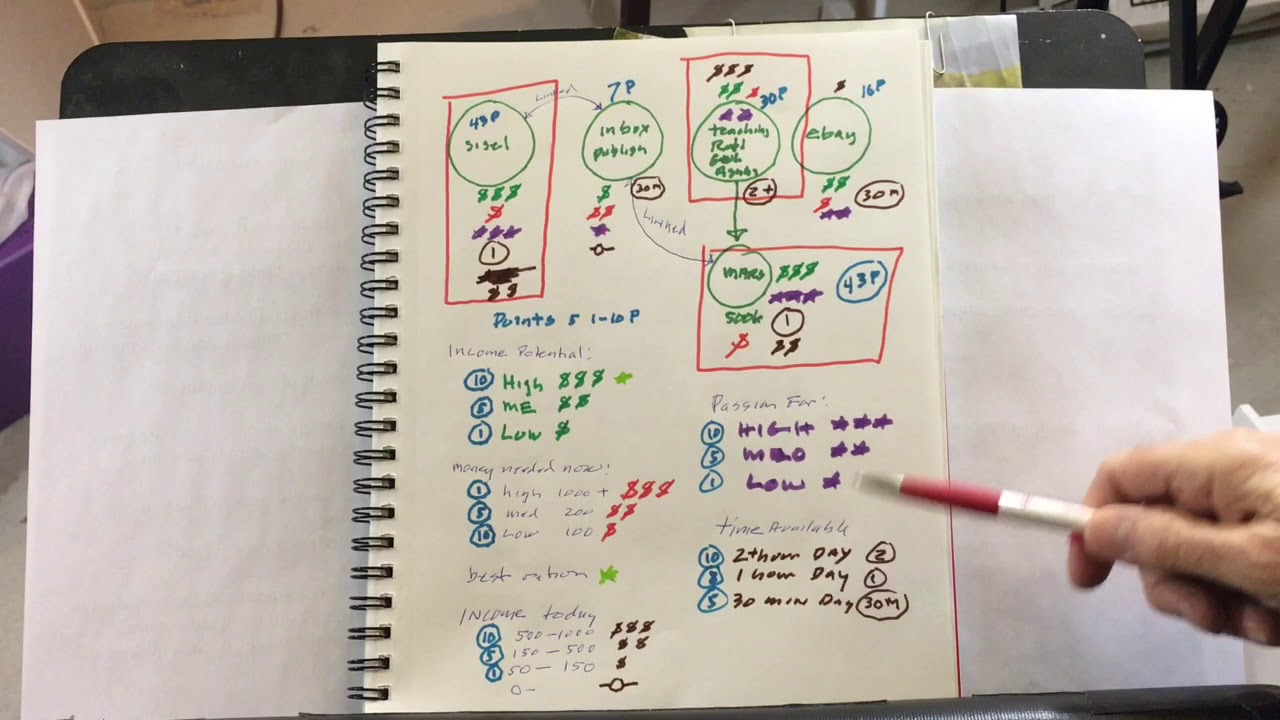 43P
sisel
$$$
$
1
$$
Linked
7P
inbox
publish
$
30M
$$
Linked
$$$
$$ $
30P
teaching
2+
$
16P
ebay
$$
30M
$
MARS
$$$
43P
500k
1
$
$$
Points 5 1-10P
Income Potential:
10 High $$$
5 ME $$
1 Low $
money needed now:
1 high 1000+ $$$
5 med 200 $$
10 Low 100 $
best
INCOME today
10 500-1000 $$$
5 150-500 $$
1 50-150 $
0-
Passion For:
10 HIGH
5 MED
1 LOW
time Available
10 2+hour DAY 2
1 hour Day 1
5 30 min Day 30M